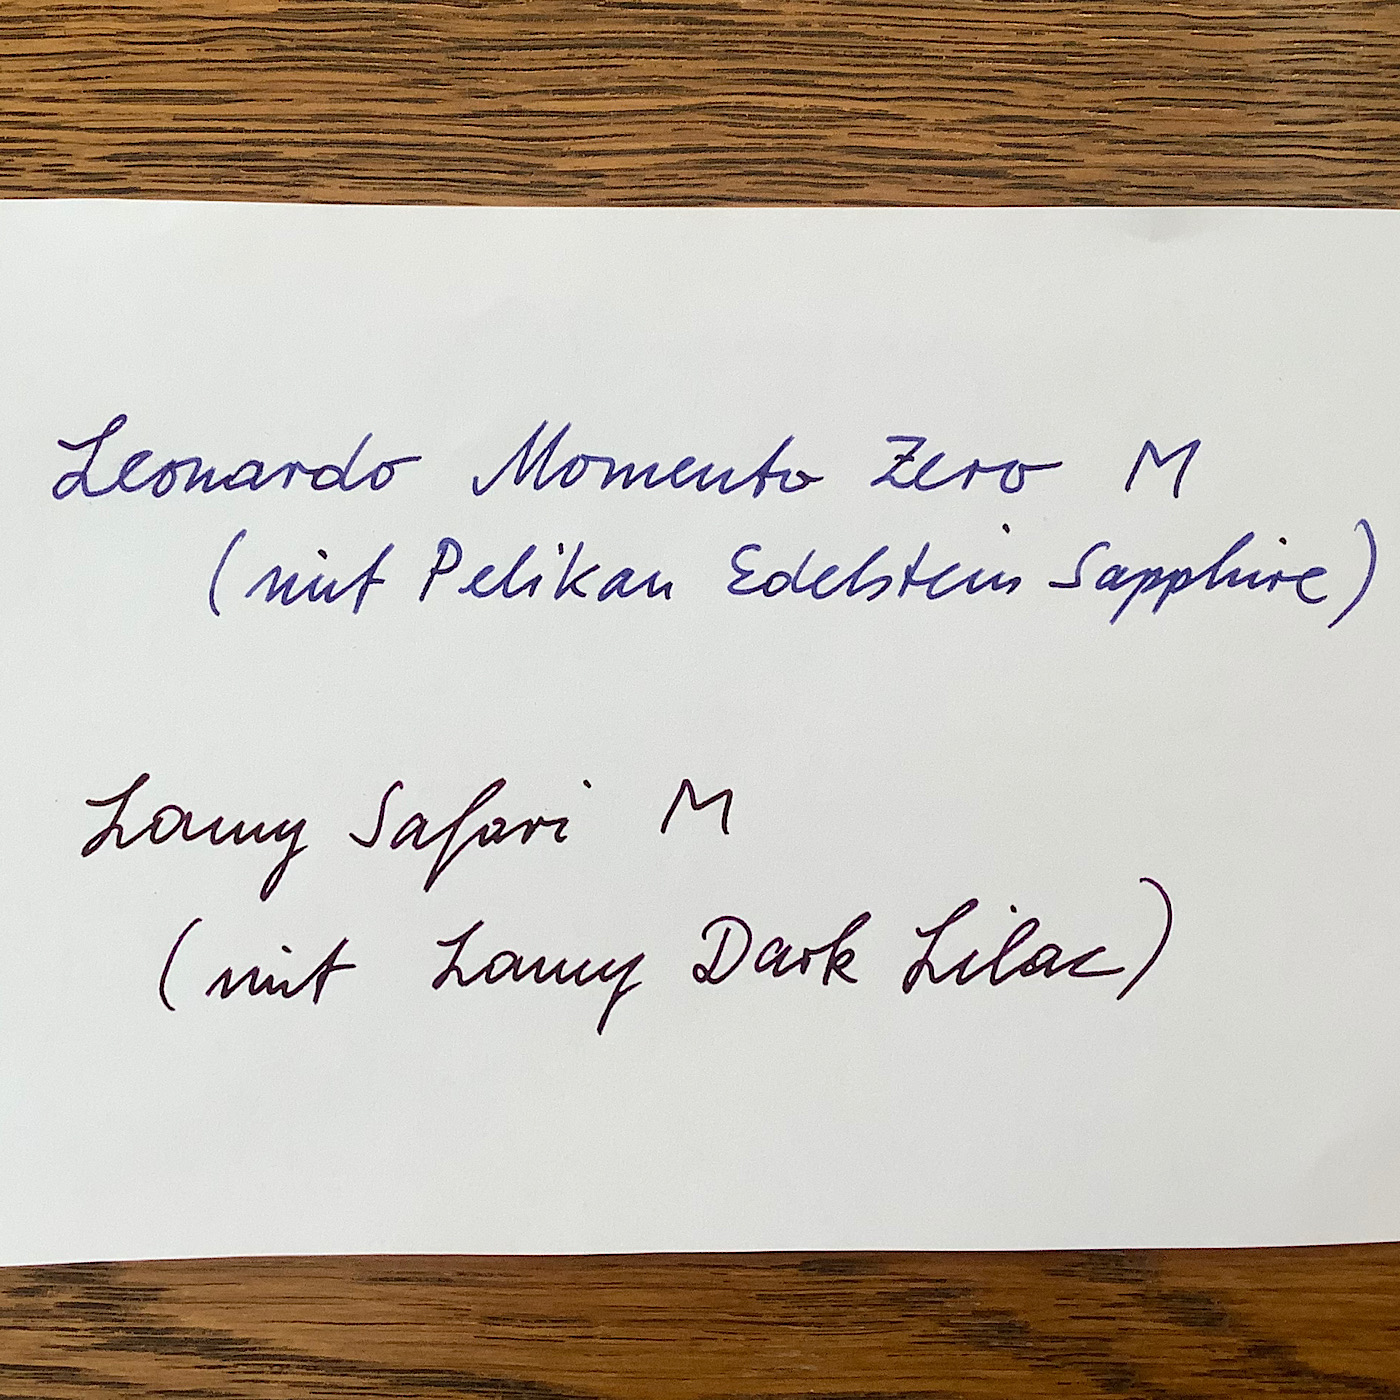 Leonardo Momento Zero M
(mit Pelikan Edelstein Sapphire)
Lamy Safari M
(mit Lamy Dark Lilac)